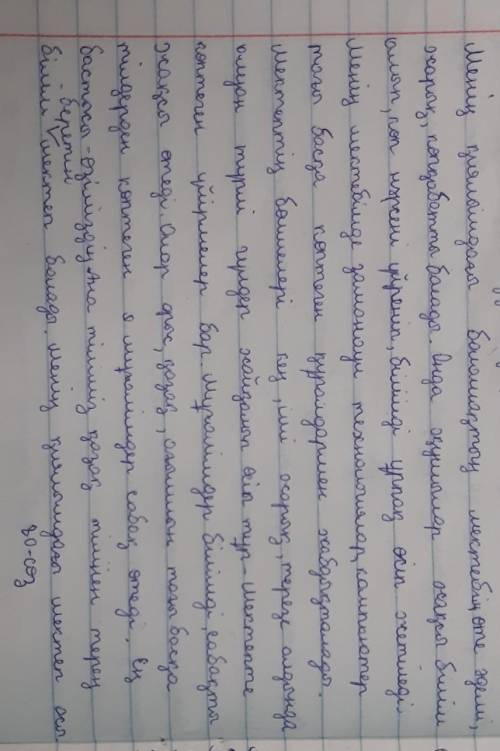 Менің қиялымдағы болашақтың мектебі өте әдемі,
жарық, қолдрабатты болады. Онда оқушылар жақсы білім
алып, көп нәрсені үйреніп, білімді ұрпақ өсіп жетіледі.
Менің мектебімде заманауи технологиялар, компьютер
тағы басқа көптеген құралдармен жабдықталады.
Мектептің бөлмелері кең, іші жарық, терезе алдында
алуан түрлі гүлдер жайқалып өсіп тұр. Мектепте
көптеген үйірмелер бар. Мұғалімдер білімді, сабақты
жақсы өтеді. Олар орыс, қазақ, ағылшын тағы басқа
тілдерден көптеген мұғалімдер сабақ өтеді. Ең
бастысы - өзіміздің Ана тіліміз қазақ тілінен терең
білім беретін мектеп болады. менің қиялымдағы мектеп осы.
80-сөз